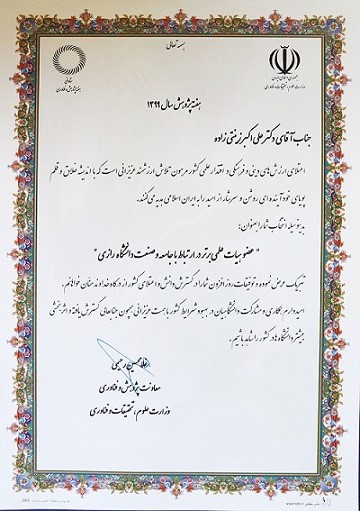 بسمه تعالی
جمهوری اسلامی ایران
وزارت علوم، تحقیقات و فناوری
هفته پژوهش و فناوری
هفته پژوهش سال ۱۳۹۹
جناب آقای دکتر علی اکبر زینتی زاده
اعتلای ارزش های دینی و فرهنگی و اقتدار علمی کشور مرهون تلاش ارزشمند عزیزانی است که با اندیشه خلاق و قلم
پویای خود آینده ای روشن و سرشار از امید را به ایران اسلامی هدیه می کنند.
بدینوسیله انتخاب شما را بعنوان:
" عضو هیات علمی برتر در ارتباط با جامعه و صنعت دانشگاه رازی "
تبریک عرض نموده و توفیقات روز افزون شما را در گسترش دانش و اعتلای کشور از درگاه خداوند منان خواهانم.
امیدوارم همکاری و مشارکت دانشگاهیان در بهبود شرایط کشور با همت عزیزانی همچون جنابعالی گسترش یافته و اثربخشی
بیشتر دانشگاه ها در کشور را شاهد باشیم.
غلامحسین رحیمی
معاونت پژوهش و فناوری
وزارت علوم، تحقیقات و فناوری